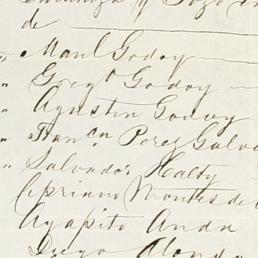 y Pozo
de
" Manl Godoy
" Gregº Godoy
" Agustin Godoy
" Franca Perez Galv
" Salvador Healty
Cipriano Montes de
Agapito Anda
Diego Alonso